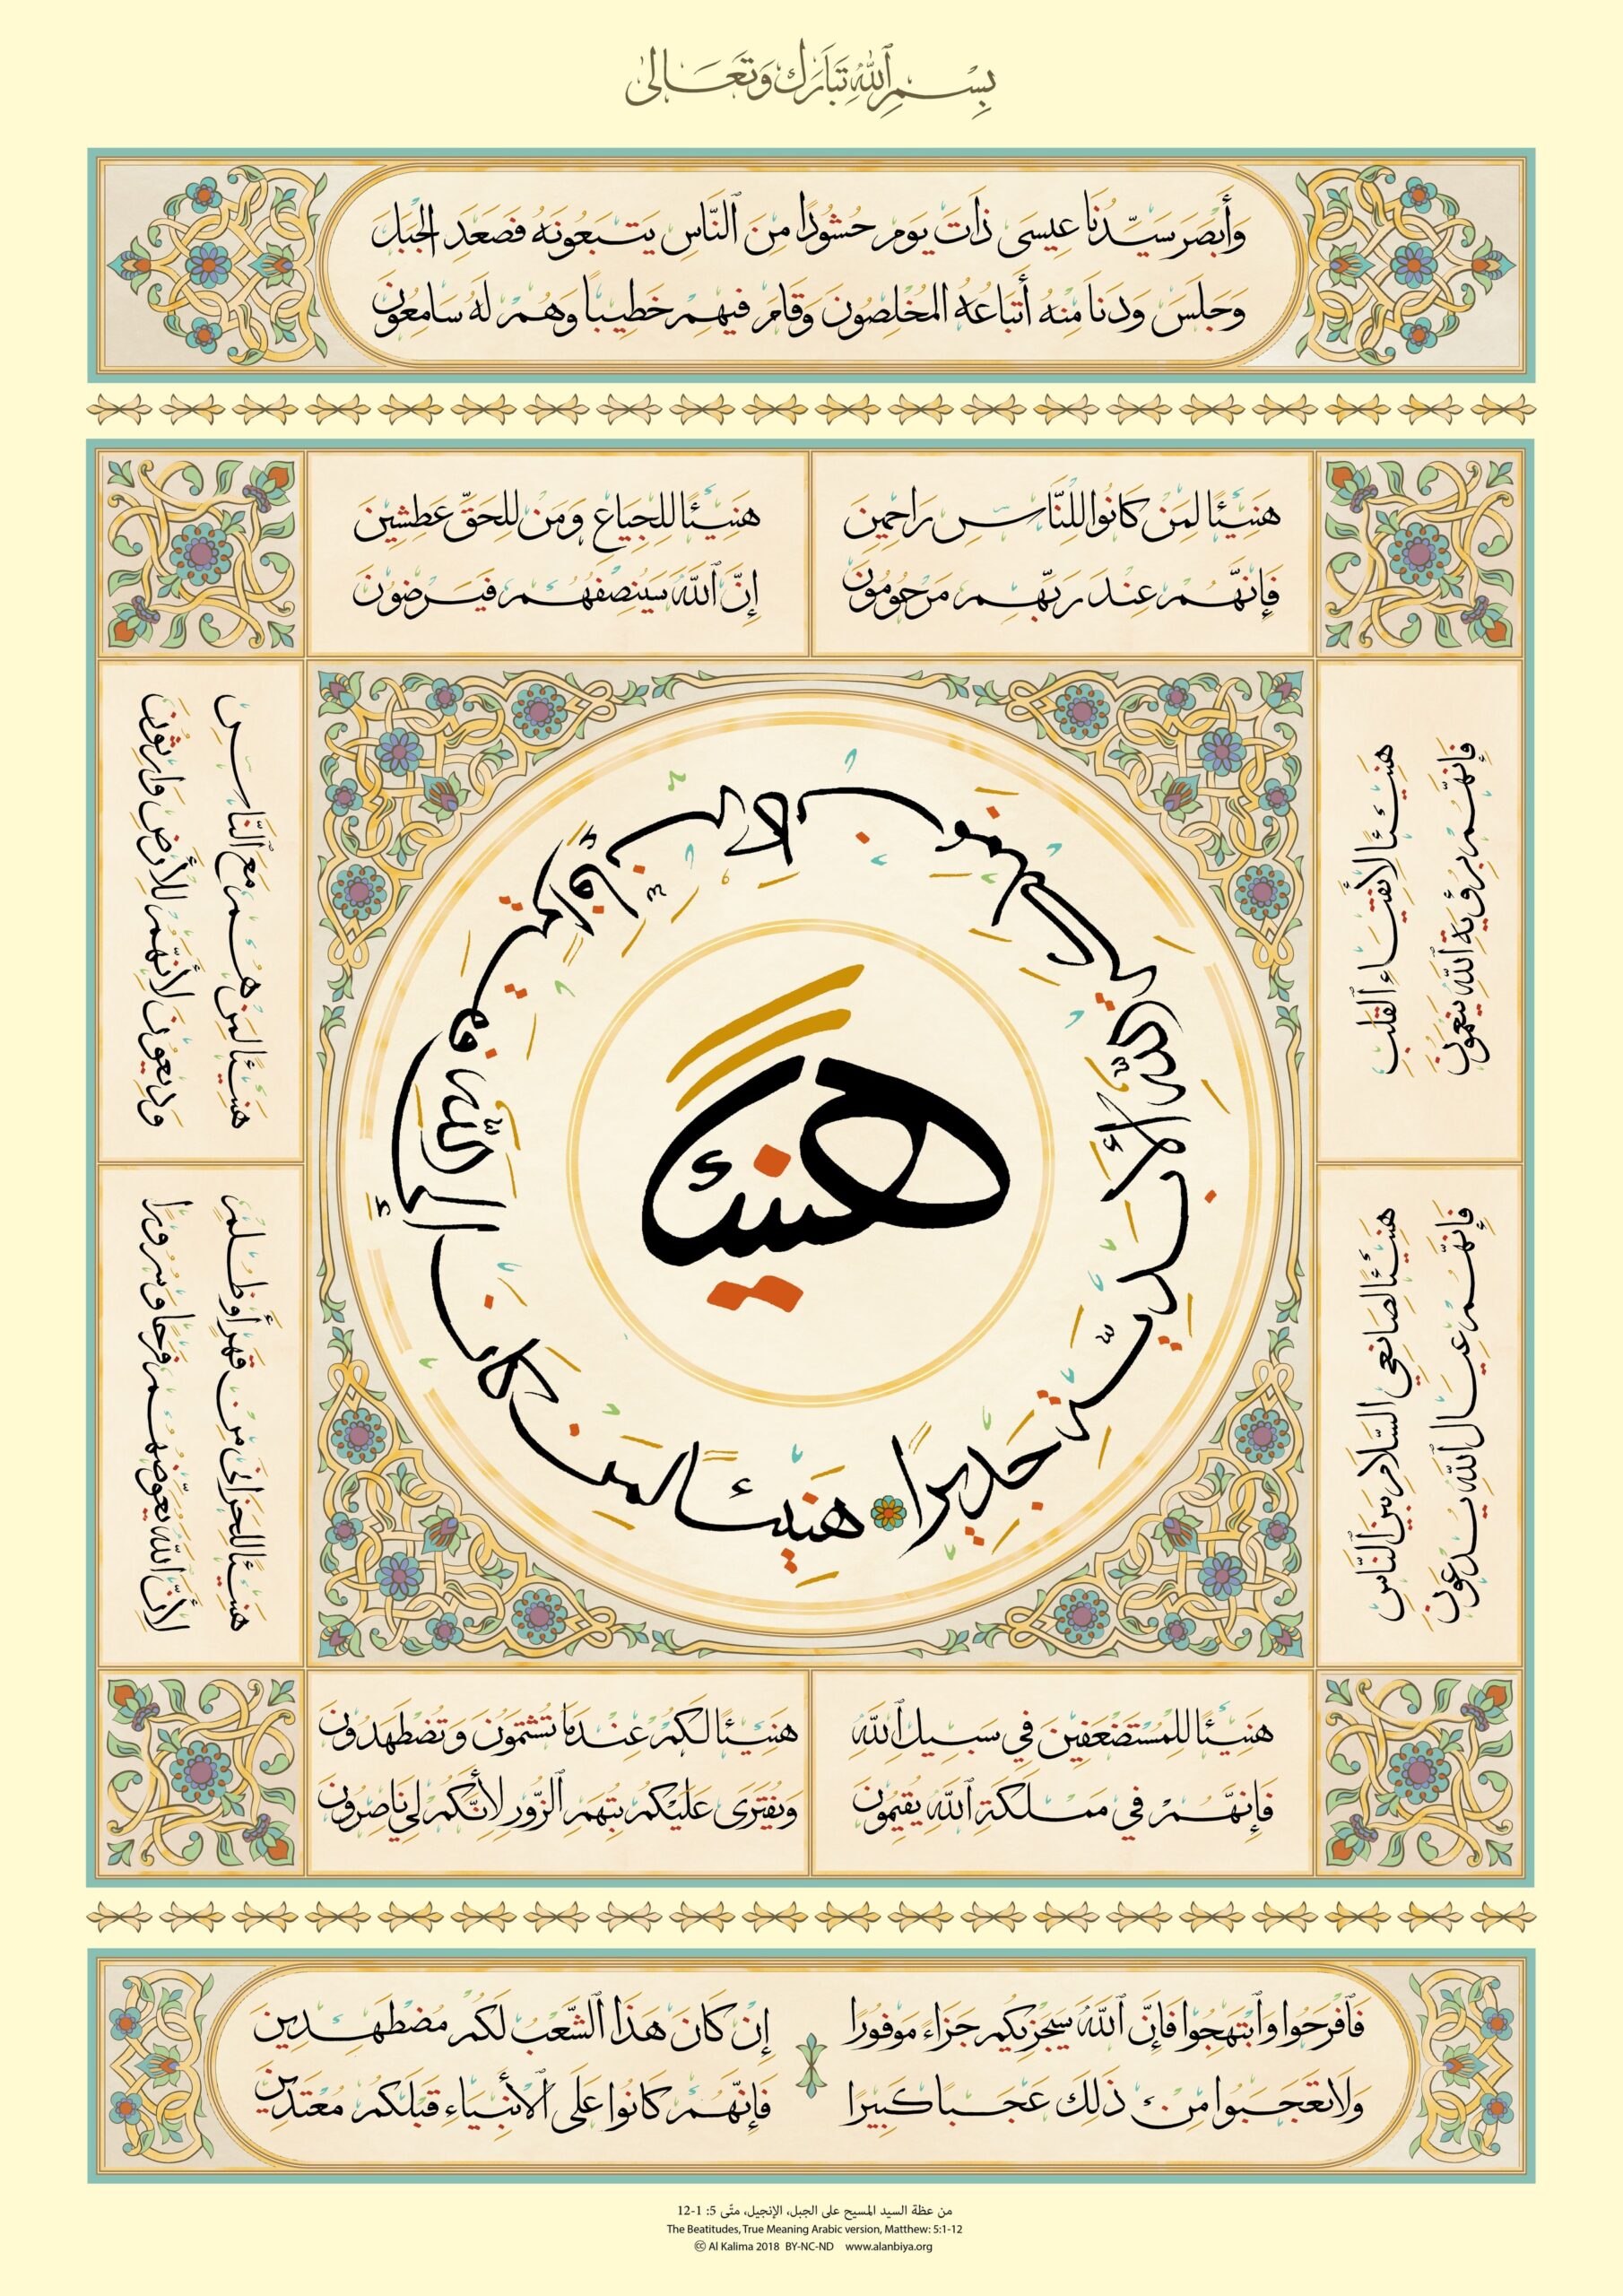 بِسْمِ ٱللهِ تَبَارَكَ وَتَعَالَىٰ
وَأَبْصَرَ سَيِّدُنَا عِيسَى ذَاتَ يَوْمٍ حُشُودًا مِنَ ٱلنَّاسِ يَتْبَعُونَهُ فَصَعَدَ الْجَبَلَ
وَجَلَسَ وَدَنَا مِنْهُ أَتْبَاعُهُ الْمُخْلِصُونَ وَقَامَ فِيهِمْ خَطِيبًا وَهُمْ لَهُ سَامِعُونَ
هَنِيئًا لِمَنْ كَانُوا لِلنَّاسِ رَاحِمِينَ
فَإِنَّهُمْ عِنْدَ رَبِّهِمْ مَرْحُومُونَ
هَنِيئًا لِلْجِيَاعِ وَمَنْ لِلْحَقِّ عَطِشِينَ
إِنَّ ٱللهَ سَيُنْصِفُهُمْ فَيَرْضَوْنَ
هَنِيئًا لِأَنْقِيَاءِ ٱلْقَلْبِ
فَإِنَّهُمْ بِرُؤْيَةِ ٱللهِ يَنْعَمُونَ
هَنِيئًا لِمَنْ هُمْ مَعَ ٱلنَّاسِ
وَدِيعُونَ لِأَنَّهُمْ لِلْأَرْضِ وَارِثُونَ
هَنِيئًا
هَنِيئًا لِمَنْ كَانَ إِلَى ٱللهِ
جَدِيرًا
هَنِيئًا لِصَانِعِي ٱلسَّلَامِ بَيْنَ ٱلنَّاسِ
فَإِنَّهُمْ عِيَالَ ٱللهِ يُدْعَوْنَ
هَنِيئًا لِلْحَزَانَى مِنْ قَهْرٍ أَوْ ظُلْمٍ
لِأَنَّ ٱللهَ يُعَوِّضُهُمْ فَرَحًا وَسُرُورًا
هَنِيئًا لِلْمُسْتَضْعَفِينَ فِي سَبِيلِ ٱللهِ
فَإِنَّهُمْ فِي مَمْلَكَةِ ٱللهِ يُقِيمُونَ
هَنِيئًا لَكُمْ عِنْدَمَا تُشْتَمُونَ وَتُضْطَهَدُونَ
وَيُفْتَرَى عَلَيْكُمْ بِتُهَمِ ٱلزُّورِ لِأَنَّكُمْ لِي نَاصِرُونَ
فَٱفْرَحُوا وَٱبْتَهِجُوا فَإِنَّ ٱللهَ سَيَجْزِيكُمْ جَزَاءً مَوْفُورًا
وَلَا تَعْجَبُوا مِنْ ذَلِكَ عَجَبًا كَبِيرًا
إِنْ كَانَ هَذَا ٱلشَّعْبُ لَكُمْ مُضْطَهِدِينَ
فَإِنَّهُمْ كَانُوا عَلَى ٱلْأَنْبِيَاءِ قَبْلَكُمْ مُعْتَدِينَ
من عظة السيد المسيح على الجبل، الإنجيل، متّى 5: 1-12
The Beatitudes, True Meaning Arabic version, Matthew: 5:1-12
Al Kalima 2018 BY-NC-ND www.alanbiya.org